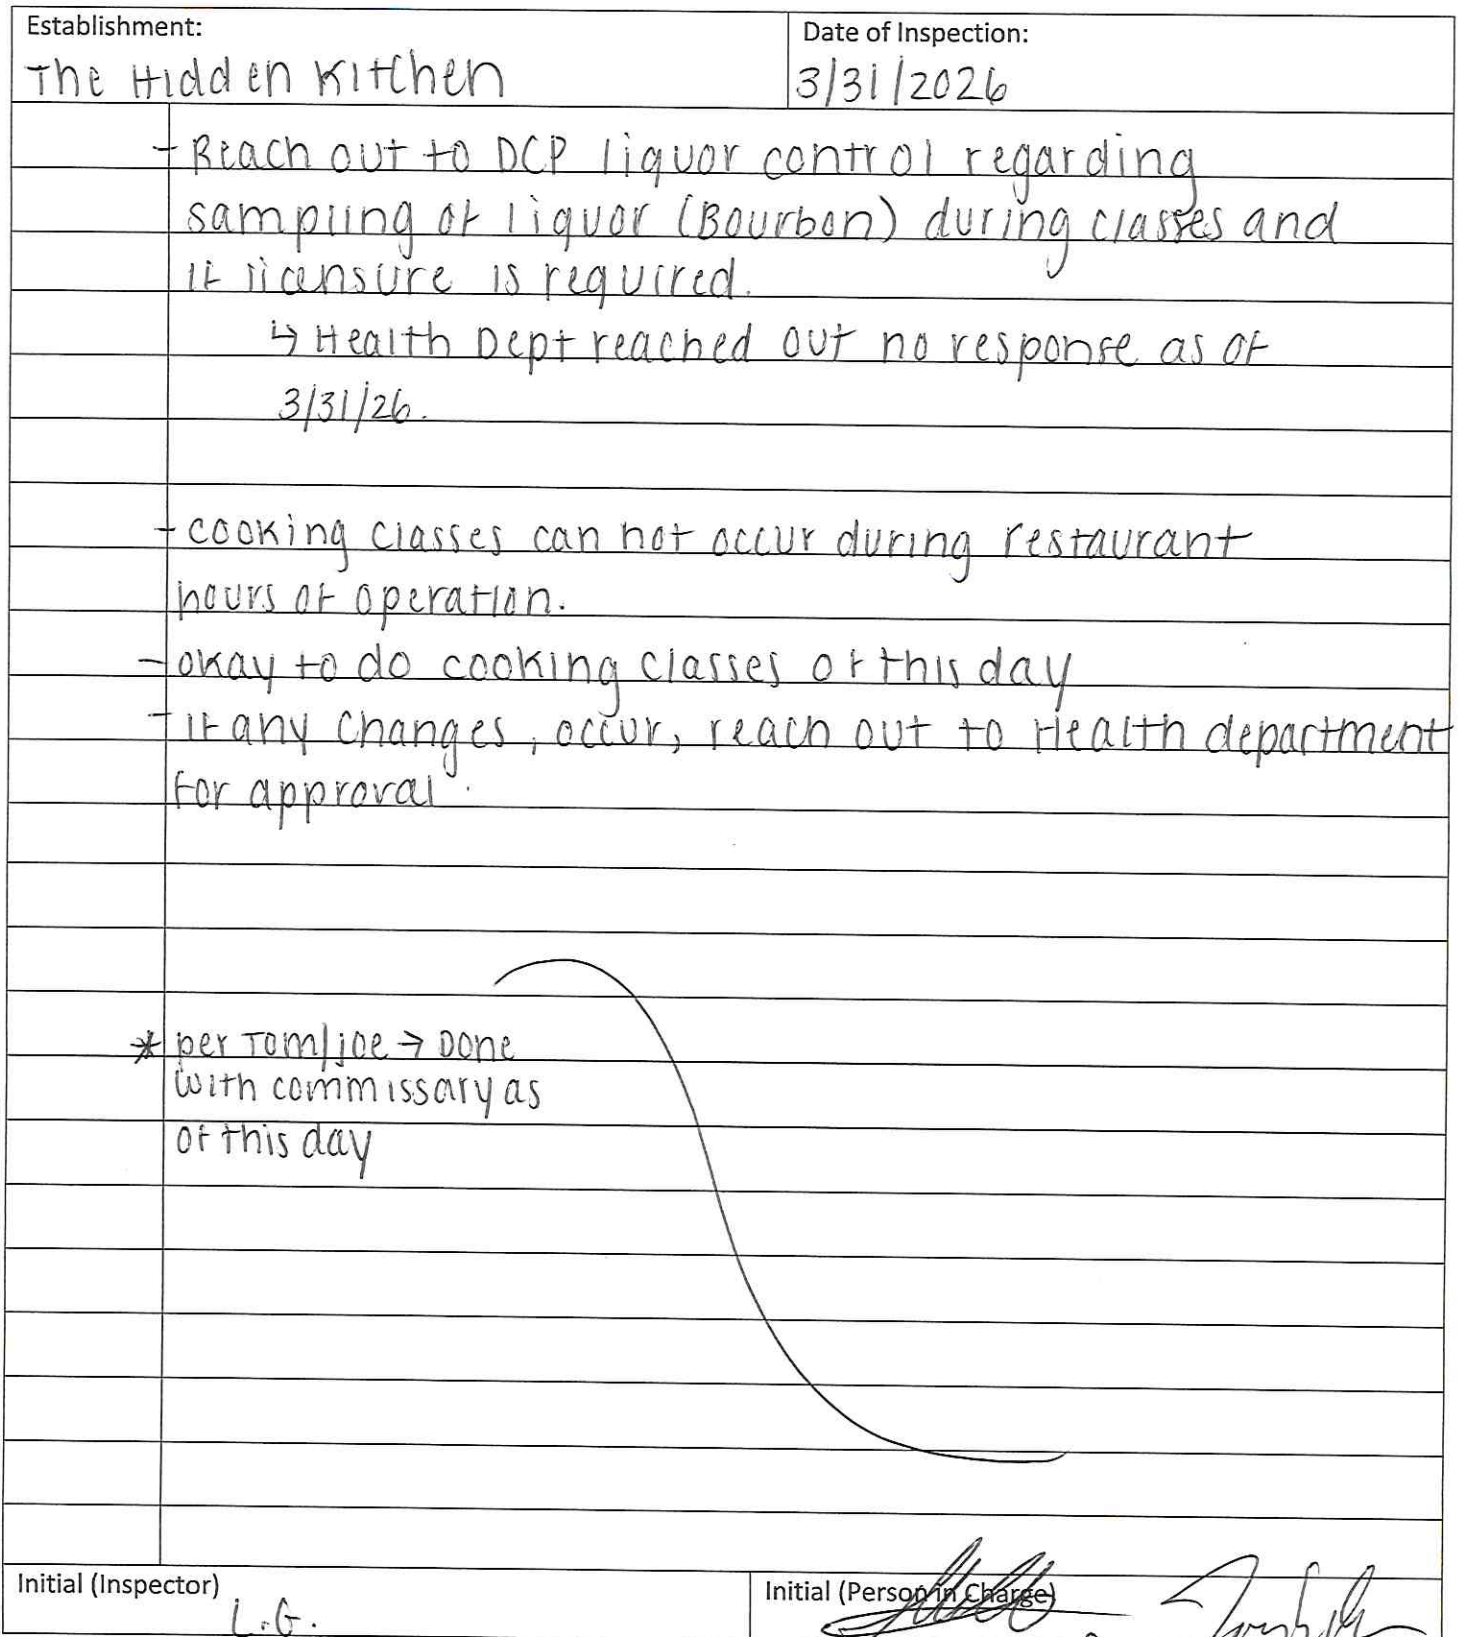 Establishment:
The Hidden Kitchen
Date of Inspection:
3/31/2026
- Reach out to DCP liquor control regarding
sampling of liquor (Bourbon) during classes and
if licensure is required.
↳ Health Dept reached out no response as of
3/31/26.
- cooking classes can not occur during restaurant
hours of operation.
- okay to do cooking classes of this day
- if any changes, occur, reach out to Health department
for approval.
* per Tom/joe → Done
with commissary as
of this day
Initial (Inspector)
L.G.
Initial (Person in Charge)